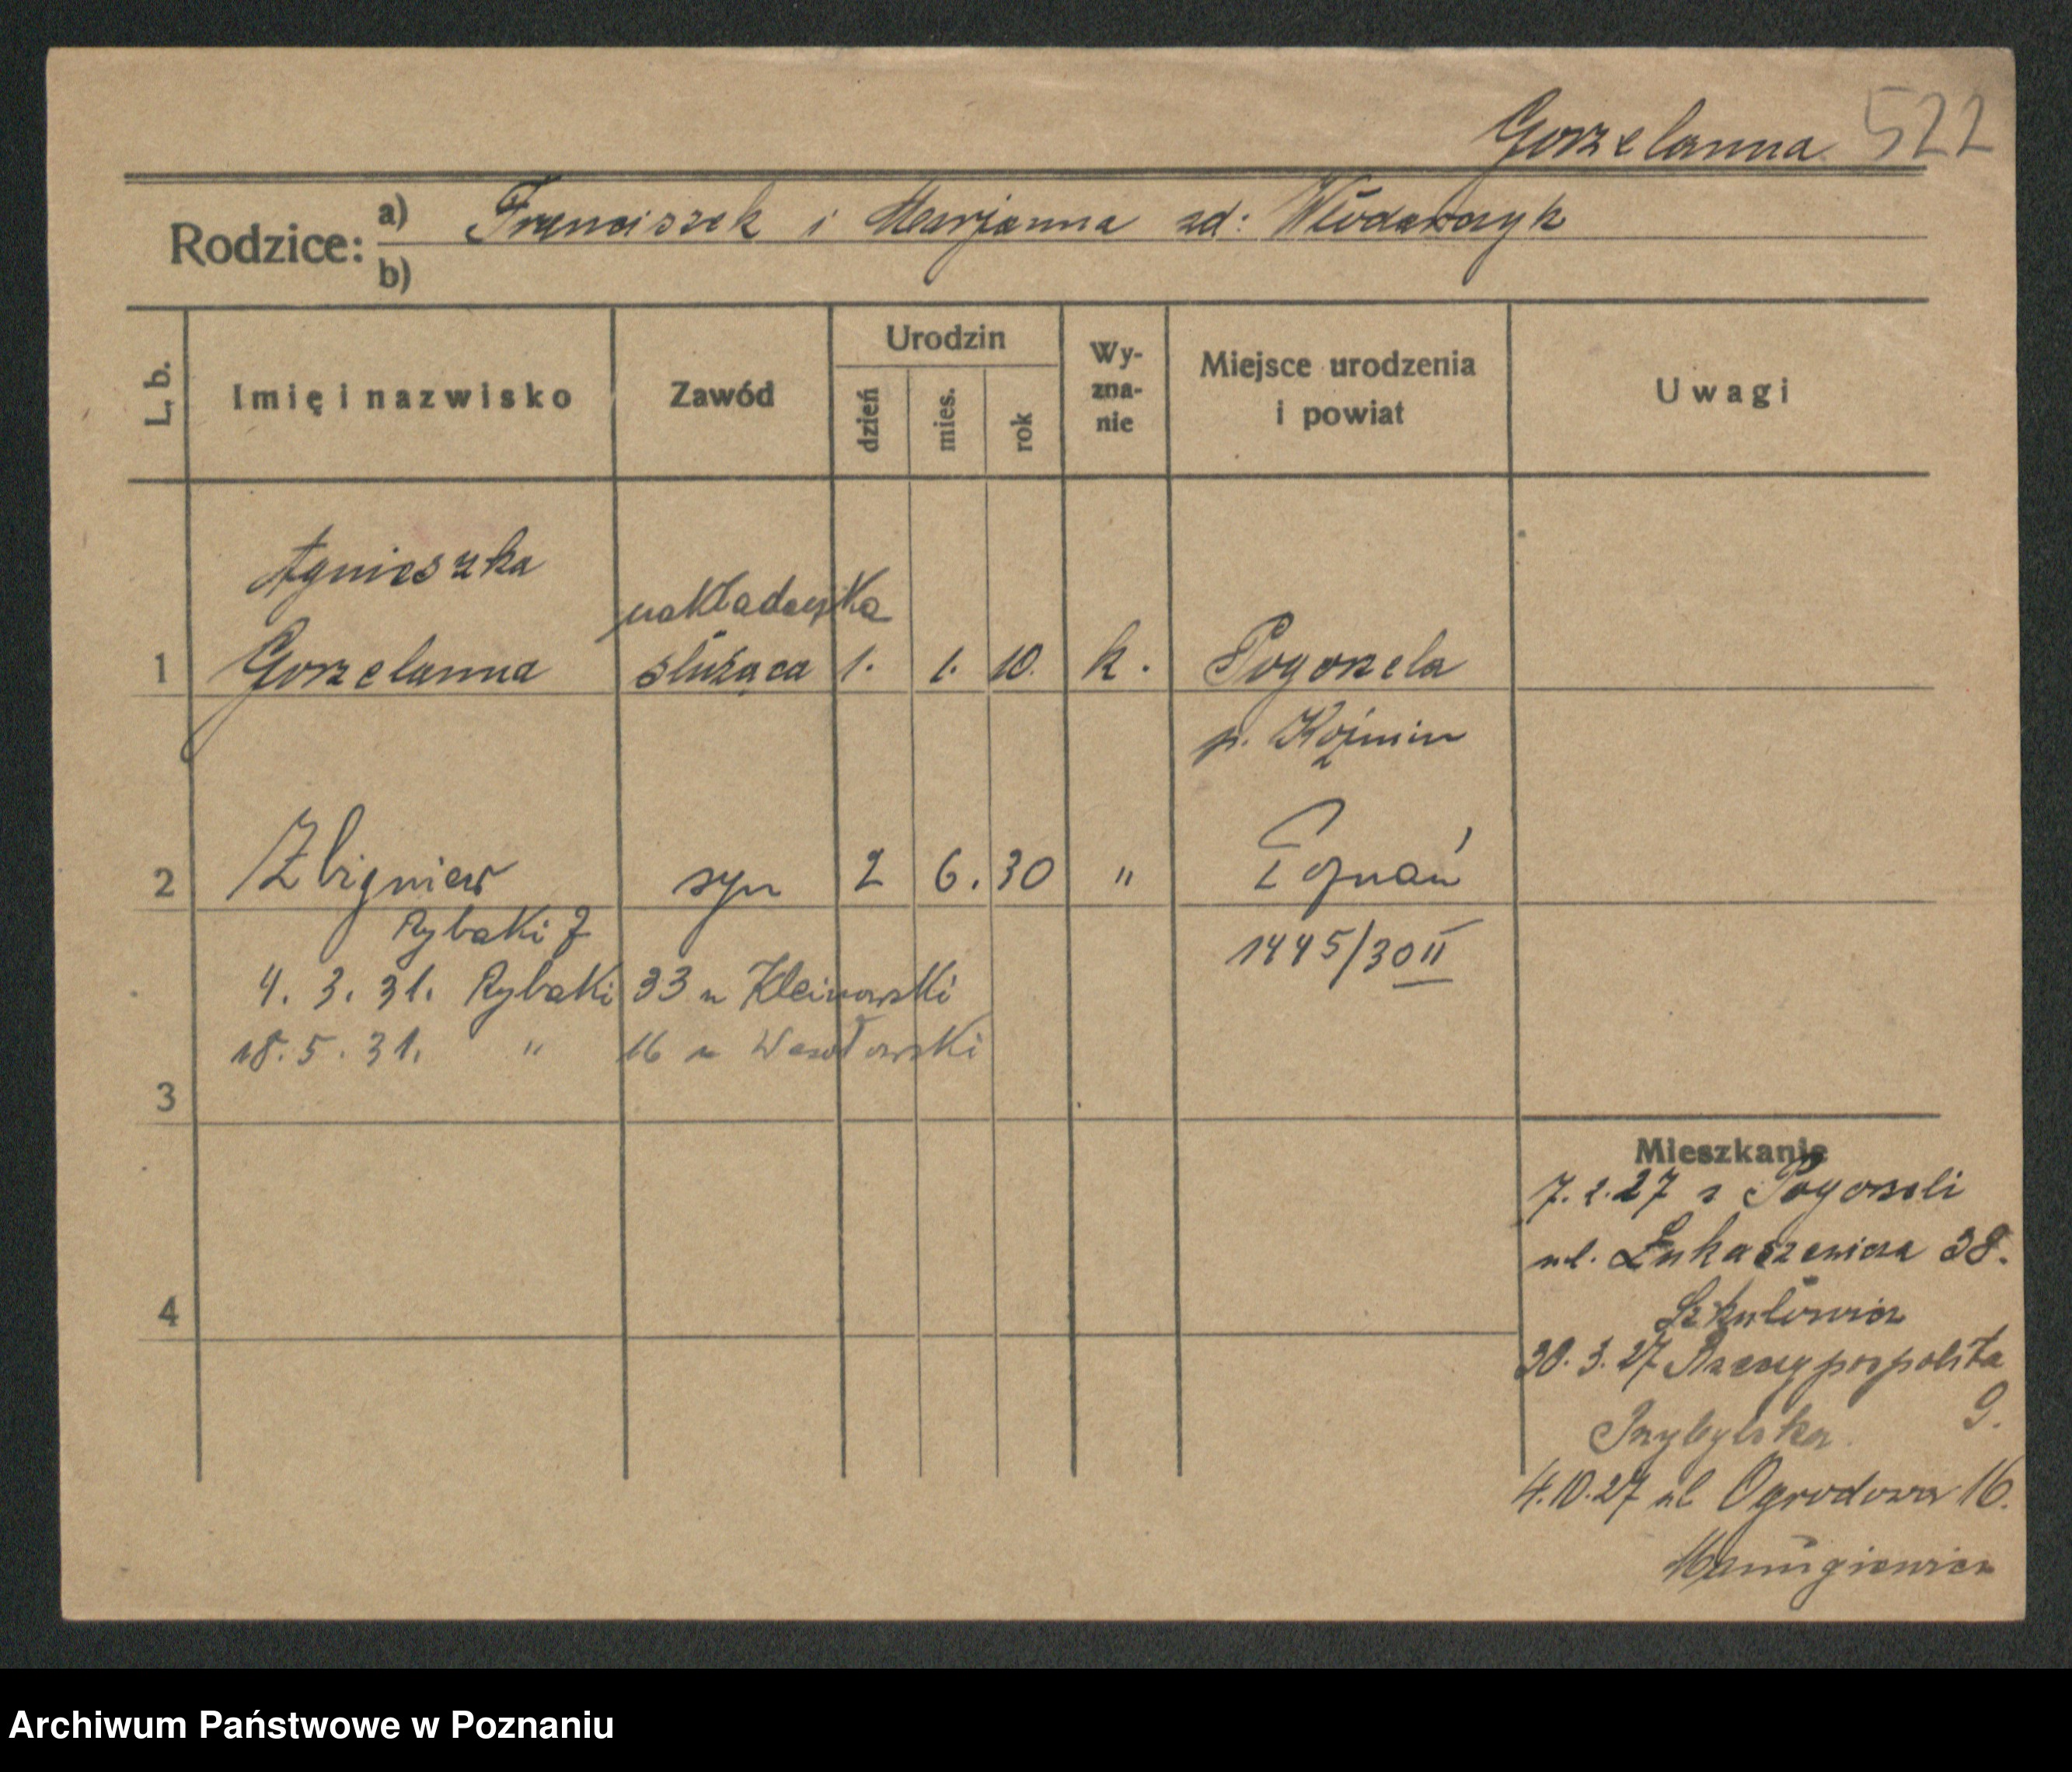 Gorzelanna 522
Rodzice: a) Franciszek i Marjanna zd: Włodarczyk
b)
L. b. Imię i nazwisko Zawód Urodzin dzień mies. rok Wy-zna-nie Miejsce urodzenia i powiat Uwagi
Agnieszka
nakładaczka
1 Gorzelanna służąca 1. 1. 10. k. Pogorzela
p. Koźmin
2 Zbigniew syn 2 6. 30 " Poznań
Rybaki 7
1445/30 II
4. 3. 31. Rybaki 33 u Kleinowski
18. 5. 31. " 16 u Wesołowski
3
Mieszkanie
7. 2. 27 z Pogorzeli
ul. Łukaszewicza 38.
4 Szkulowicz
30. 3. 27 Rzeczypospolita
9.
Przybylska
4. 10. 27 ul Ogrodowa 16.
Archiwum Państwowe w Poznaniu